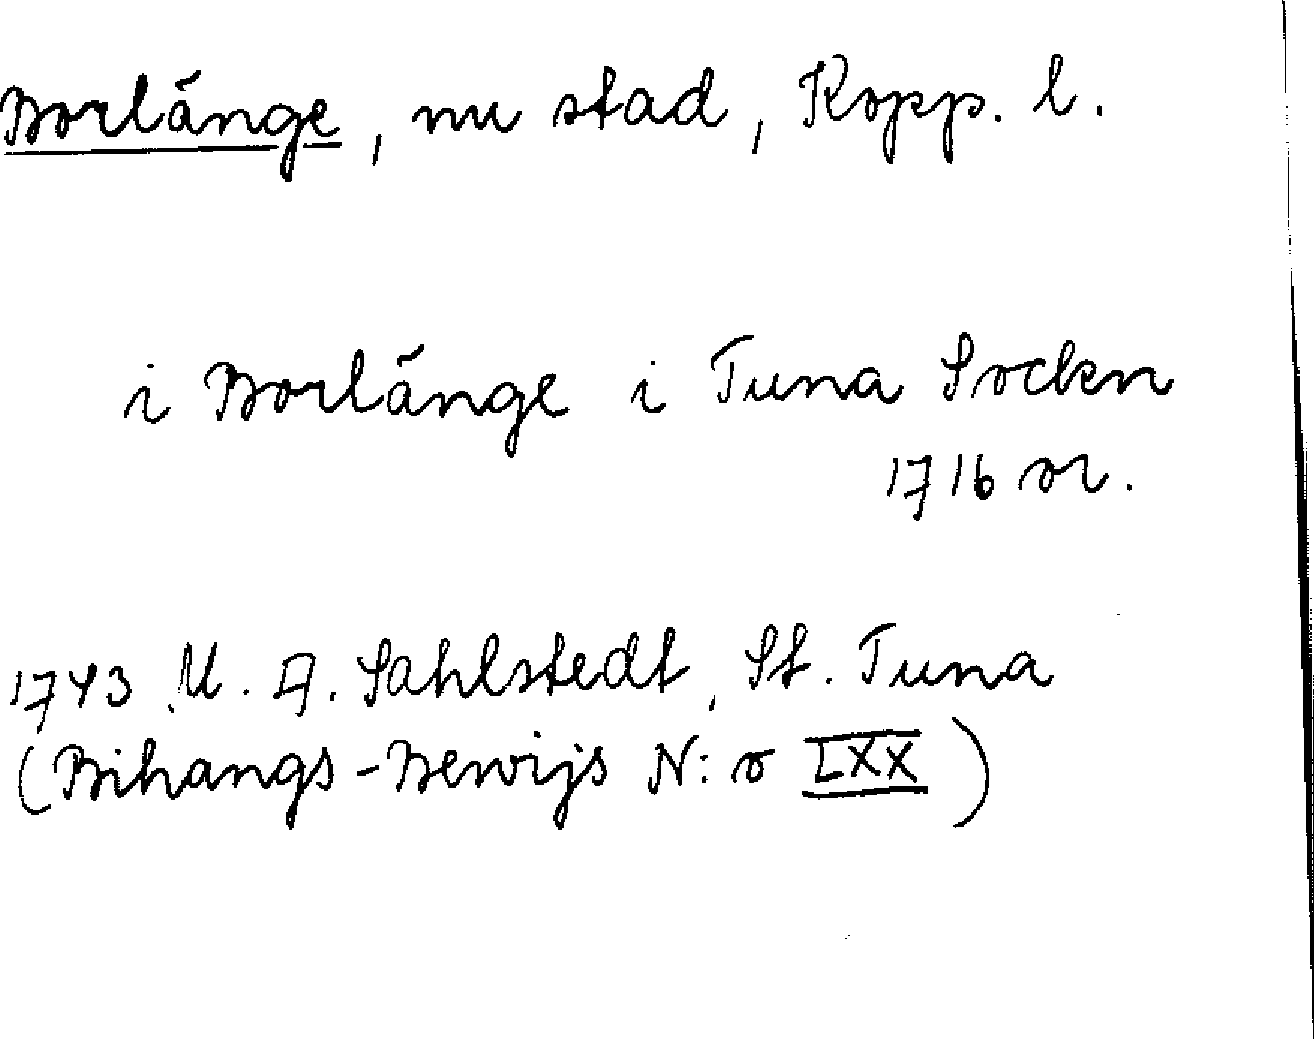 Borlänge, nu stad, Kopp. l.
i Borlänge i Tuna Socken
1716 or.
1743 M. A. Sahlstedt, St. Tuna
(Bihangs-Bewijs N:o LXX)